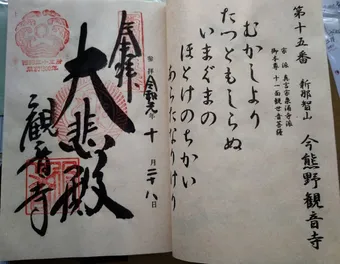 第十五番 新那智山 今熊野観音寺
宗派 真言宗泉涌寺派
御本尊 十一面観世音菩薩
むかしより
たつともしらぬ
いまぐまの
ほとけのちかい
あらたなりけり
令和元年十月二十八日
奉拝
大悲殿
観音寺